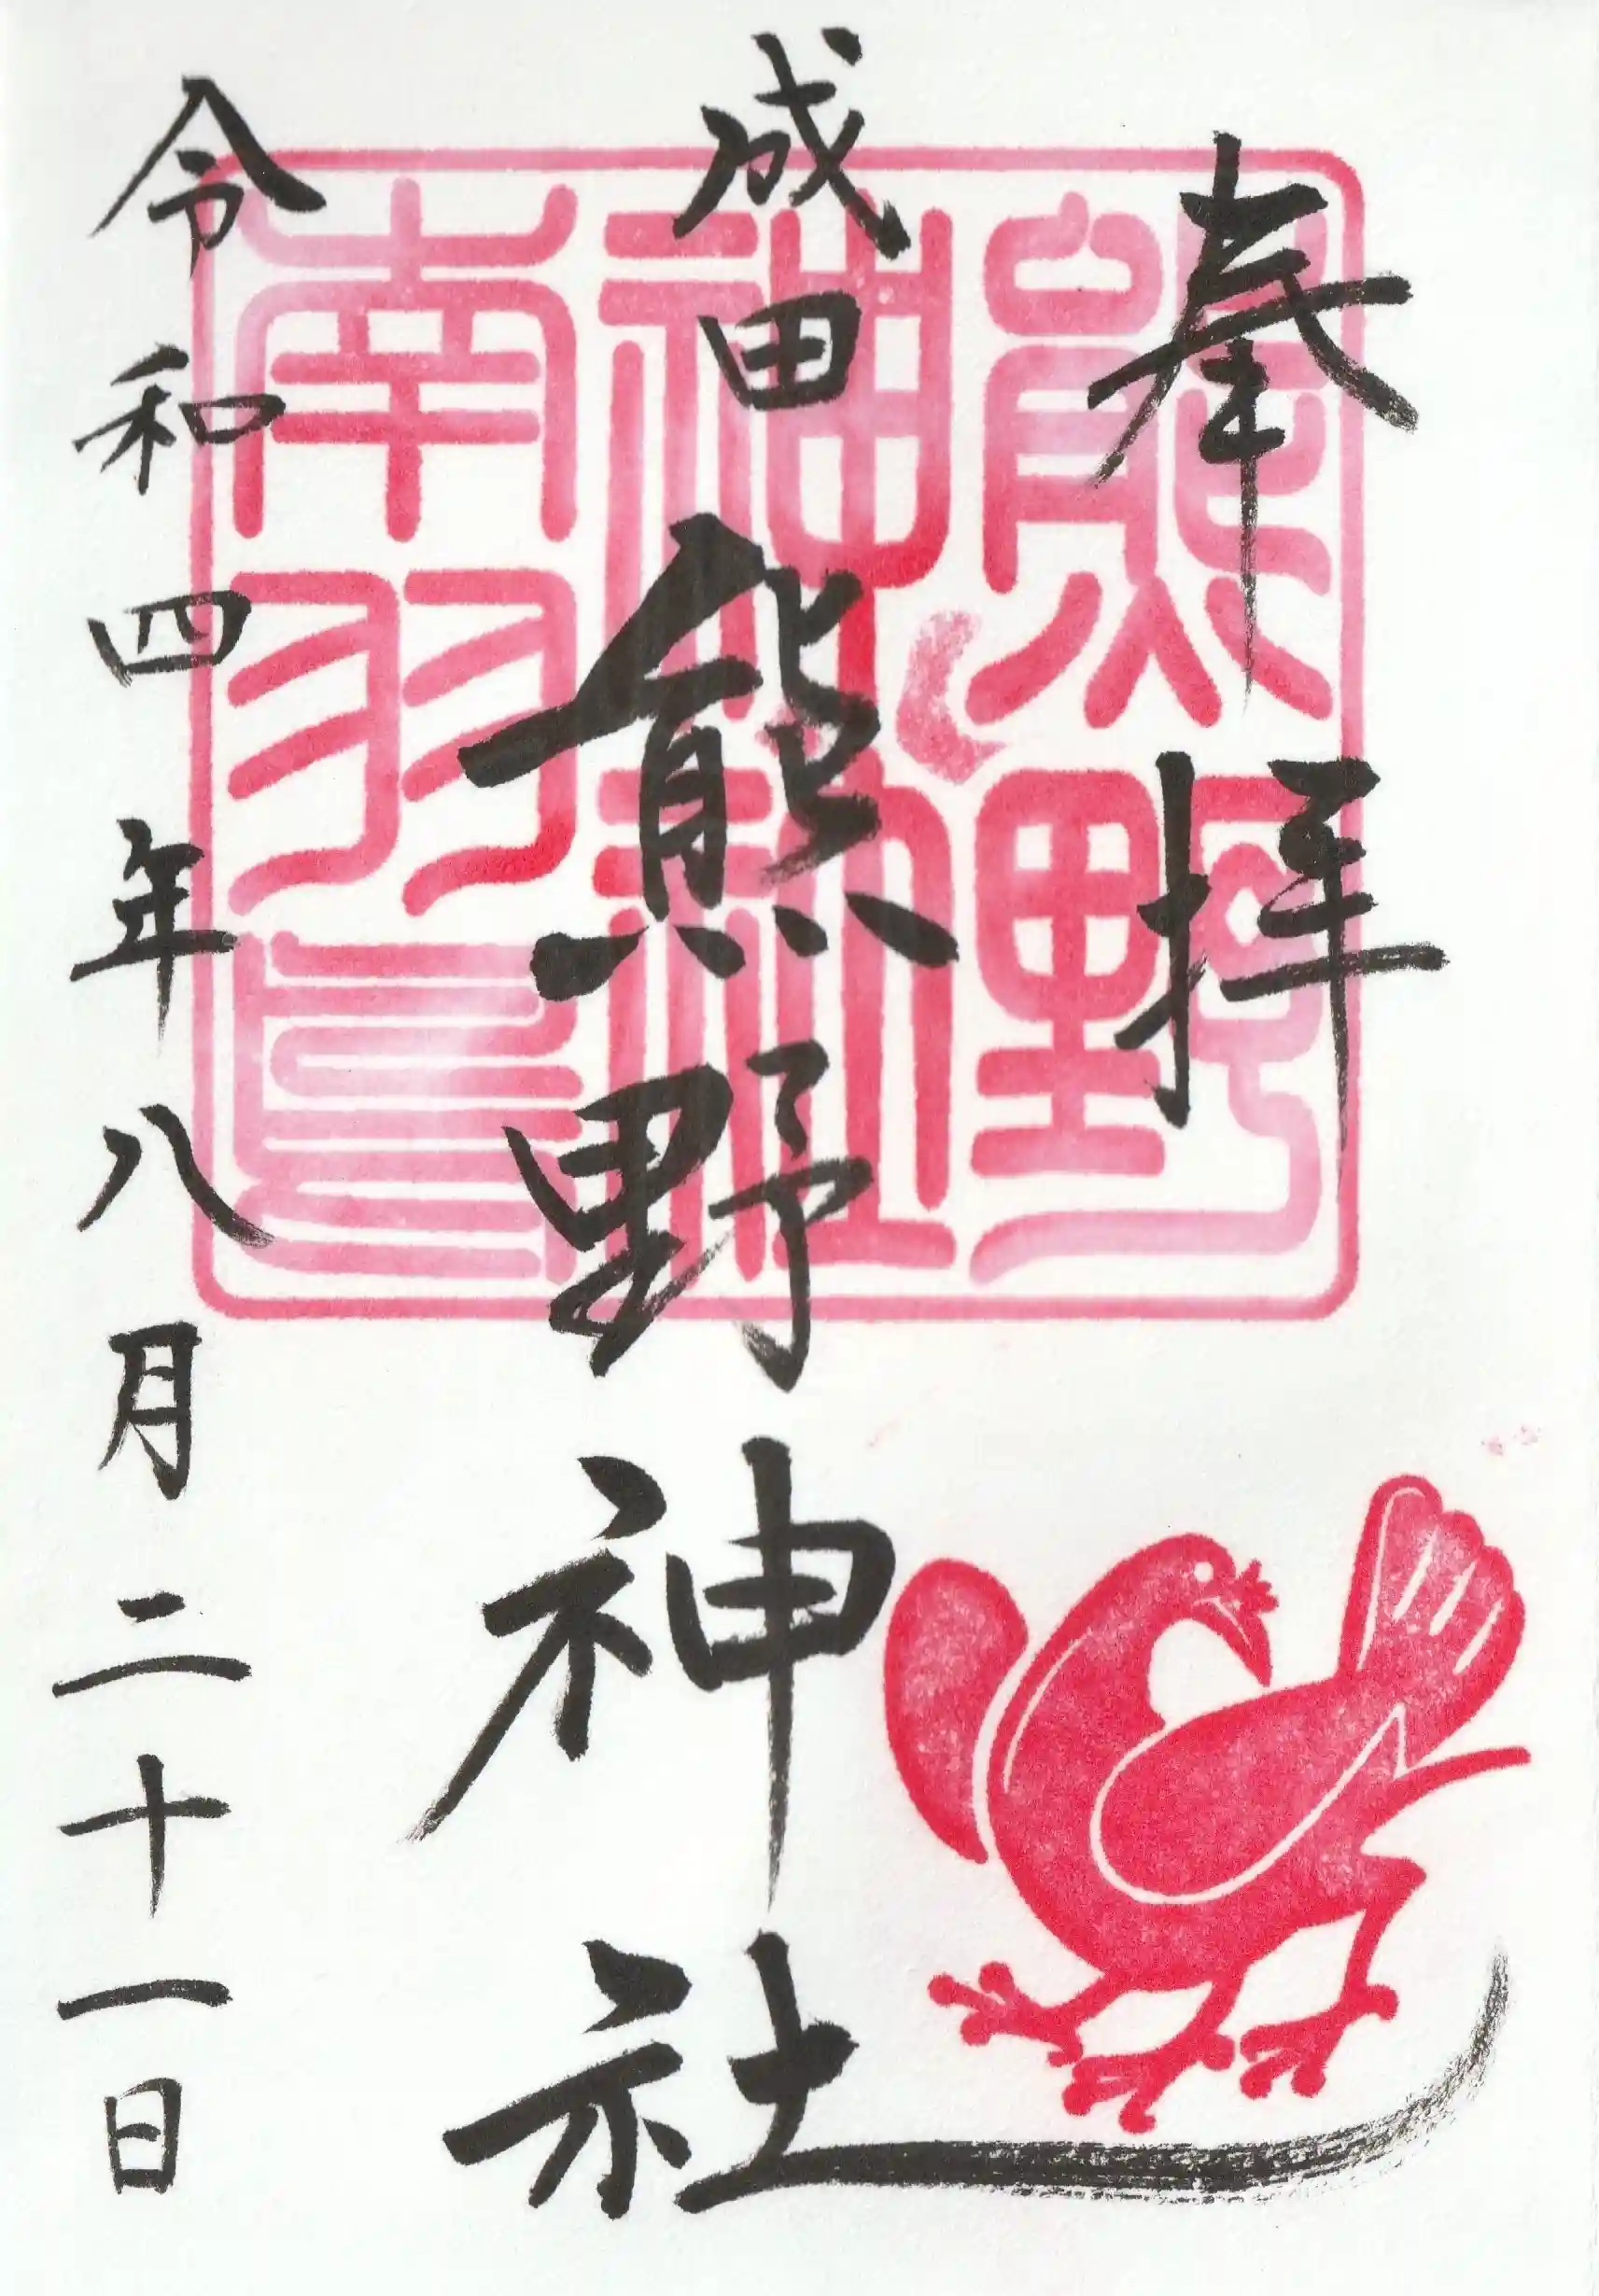 奉拝
成田 熊野神社
令和四年八月二十一日
熊野
神社
南羽鳥